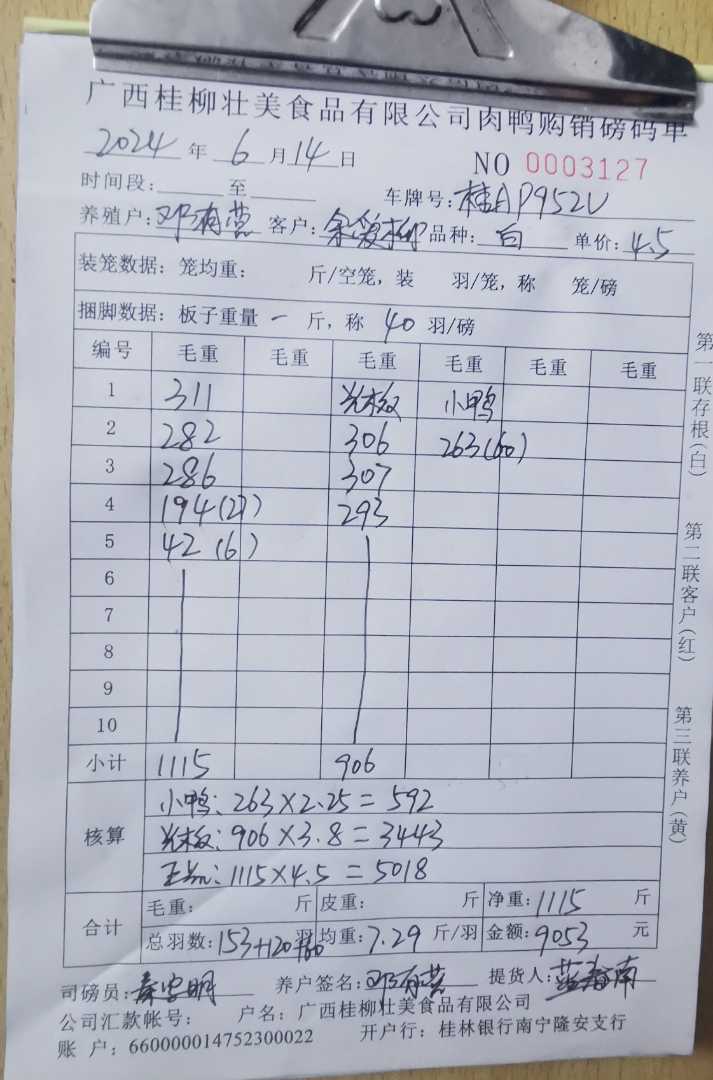 广西桂柳壮美食品有限公司肉鸭购销磅码单
2024年6月14日 NO 0003127
时间段:______至______ 车牌号:桂AP952U
养殖户:邓有营 客户: 品种:白 单价:4.5
装笼数据:笼均重: 斤/空笼,装 羽/笼,称 笼/磅
捆脚数据:板子重量 一 斤,称 40 羽/磅
编号 毛重 毛重 毛重 毛重 毛重 毛重
1 311 光板 小鸭
2 282 306 263(60)
3 286 307
4 194(27) 293
5 42(6)
6
7
8
9
10
小计 1115 906
核算
小鸭:263×2.25=592
光板:906×3.8=3443
正品:1115×4.5=5018
合计
毛重: 斤 皮重: 斤 净重:1115 斤
总羽数:153+120+60 羽 均重:7.29 斤/羽 金额:9053 元
司磅员: 养户签名:邓有营 提货人:
公司汇款帐号: 户名:广西桂柳壮美食品有限公司
账 户:660000014752300022 开户行:桂林银行南宁隆安支行
第一联存根(白)
第二联客户(红)
第三联养户(黄)